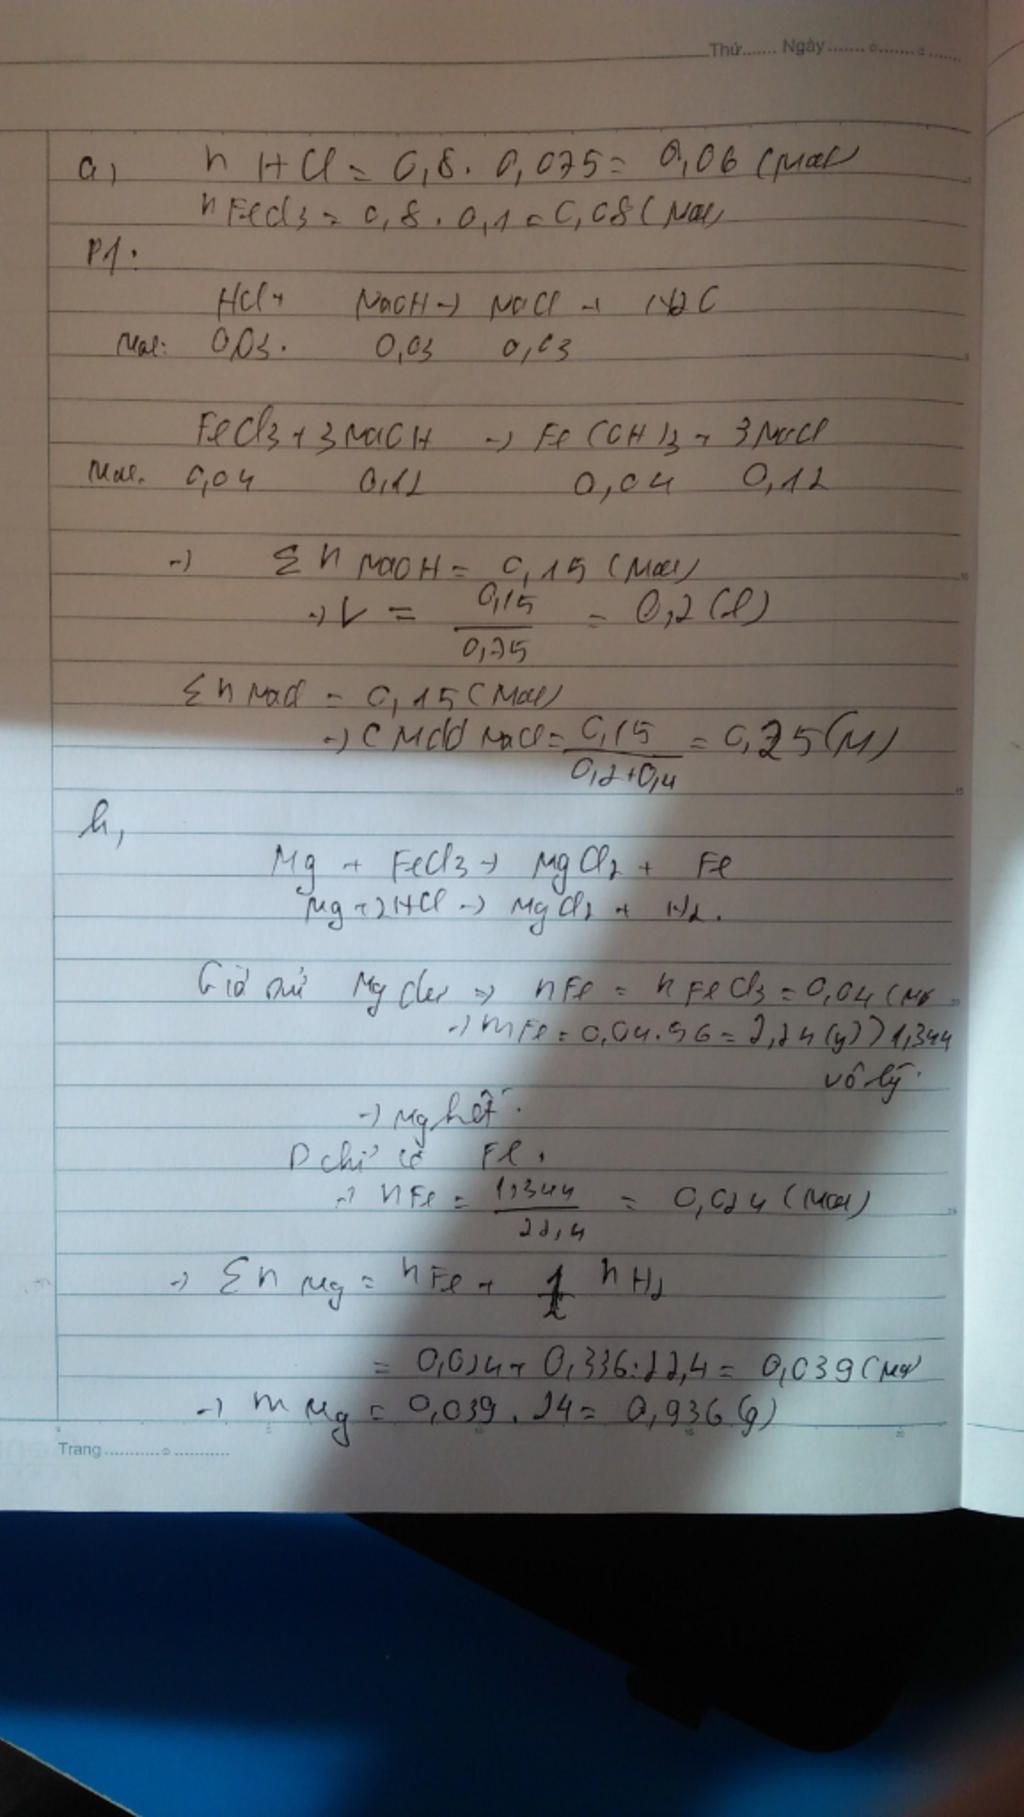 Thứ....... Ngày.......o.......o.......
a, n HCl = 0,8 . 0,075 = 0,06 (mol)
n FeCl3 = 0,8 . 0,1 = 0,08 (mol)
P1:
HCl + NaOH → NaCl + H2O
Mol: 0,03. 0,03 0,03
FeCl3 + 3NaOH → Fe(OH)3 + 3NaCl
Mol. 0,04 0,12 0,04 0,12
→ Σ n NaOH = 0,15 (mol)
→ V = 0,15/0,75 = 0,2 (l)
Σ n NaCl = 0,15 (mol)
→ CMdd NaCl = 0,15/(0,2+0,4) = 0,25 (M)
b,
Mg + FeCl3 → MgCl2 + Fe
Mg + 2HCl → MgCl2 + H2.
Giả sử Mg dư ⇒ nFe = nFeCl3 = 0,04 (mo
→ mFe = 0,04.56 = 2,24 (g) > 1,344
vô lý.
→ Mg hết.
D chỉ có Fe.
→ nFe = 1,344/22,4 = 0,024 (mol)
→ Σ n Mg = nFe + 1/2 n H2
= 0,024 + 0,336:22,4 = 0,039 (mol)
→ m Mg = 0,039 . 24 = 0,936 (g)
Trang...........o...........